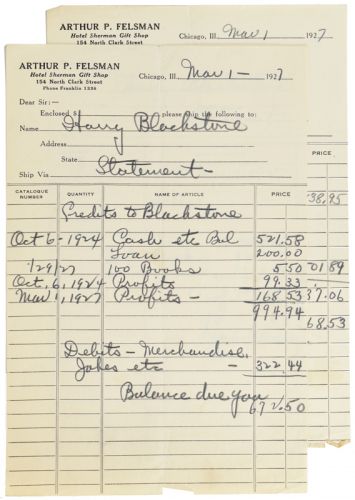 ARTHUR P. FELSMAN
Hotel Sherman Gift Shop
154 North Clark Street
Chicago, Ill., Mar 1 1927
ARTHUR P. FELSMAN
Hotel Sherman Gift Shop
154 North Clark Street
Phone Franklin 1336
Chicago, Ill., Mar 1 - 1927
Dear Sir:—
Enclosed $ please ship the following to:
Name Harry Blackstone
Address
State
Ship Via Statement -
CATALOGUE NUMBER QUANTITY NAME OF ARTICLE PRICE PRICE
38.95
Credits to Blackstone
Oct 6 - 1924 Cash etc Bal 521.58
Loan 200.00
1/29/27 100 Books 5.50 01.89
Oct, 6, 1924 Profits 99.33
Mar 1, 1927 Profits - 168.53 37.06
994.94
68.53
Debits - Merchandise,
Jokes etc - 322.44
Balance due you
672.50